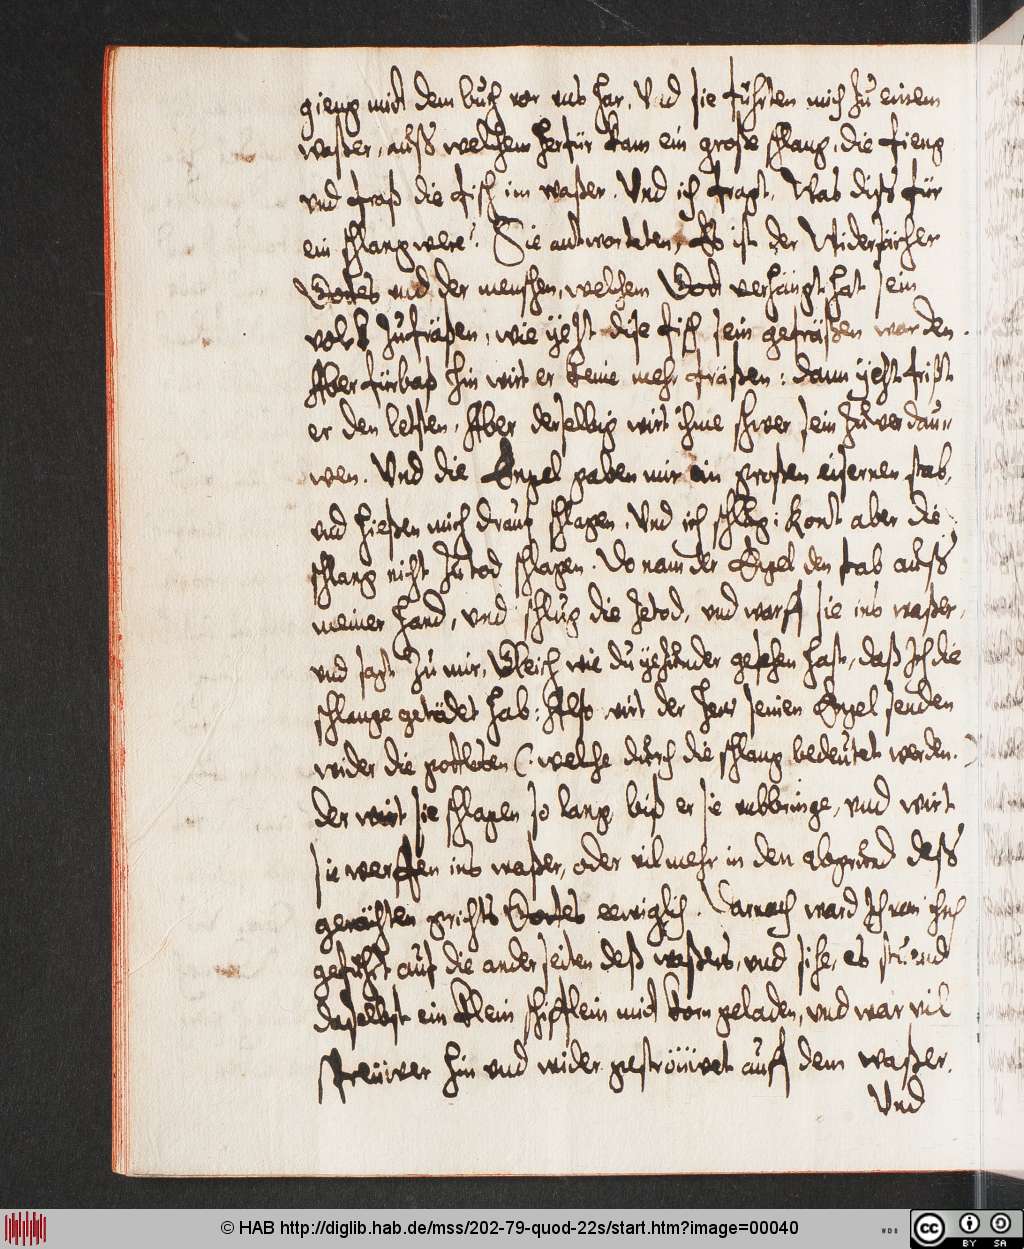 gieng mit dem buch vor uns har, Und sie führten mich zu einem
wasser, auß welchem herfür kam ein große schlang, die fieng
und fraß die fisch im waßer. Und ich fragt, Was diß für
ein schlang were? Sie antworteten, Es ist der Widersächer
Gottes und der menschen, welchem Gott verhängt hat sein
volk zufräßen, wie yetzt dise fisch sein gefräßen worden.
Aber fürbaß hin wirt er keine mehr fräßen: dann yetzt frißt
er den letsten, Aber derselbig wirt ihme schwer sein zu verdau„
wen. Und die Engel gaben mir ein großen eisernen stab,
und hießen mich drauf schlagen, Und ich schlug: kont aber die
schlang nicht zu tod schlagen. Do nam der Engel den stab außß
meiner hand, und schlug die zetod, und warff sie ins waßer,
und sagt zu mir, Gleich wie du yezunder gesehen hast, daß Ich die
schlange getödet hab: Also wirt der Herr seinen Engel senden
wider die gotlosen (: welche durch die schlang bedeutet werden. :)
der wirt sie schlagen so lang, biß er sie umbbringe, und wirt
sie werffen ins waßer, oder vilmehr in den abgrund deß
gerächten grichts Gottes eewiglich. Darnach ward Ich von ihnen
geführt auf die ander seiten deß waßers, und sihe, es stuond
daselbst ein klein schifflein mit korn geladen, und war vil
streuwer hin und wider geströuwet auff dem waßer.
Und
© HAB http://diglib.hab.de/mss/202-79-quod-22s/start.htm?image=00040
WDB
cc BY SA